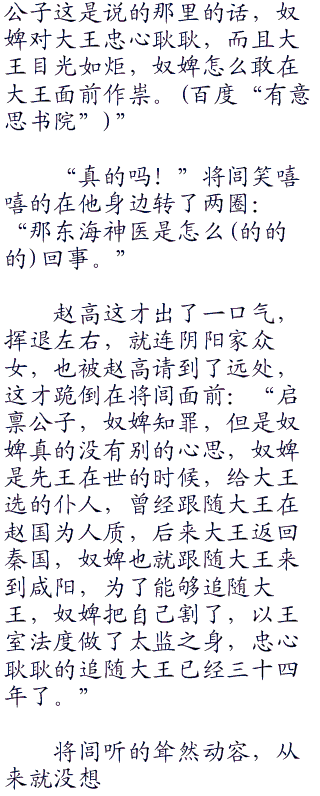 公子这是说的那里的话，奴
婢对大王忠心耿耿，而且大
王目光如炬，奴婢怎么敢在
大王面前作祟。(百度“有意
思书院”)”
“真的吗！”将闾笑嘻
嘻的在他身边转了两圈：
“那东海神医是怎么(的的
的)回事。”
赵高这才出了一口气，
挥退左右，就连阴阳家众
女，也被赵高请到了远处，
这才跪倒在将闾面前：“启
禀公子，奴婢知罪，但是奴
婢真的没有别的心思，奴婢
是先王在世的时候，给大王
选的仆人，曾经跟随大王在
赵国为人质，后来大王返回
秦国，奴婢也就跟随大王来
到咸阳，为了能够追随大
王，奴婢把自己割了，以王
室法度做了太监之身，忠心
耿耿的追随大王已经三十四
年了。”
将闾听的耸然动容，从
来就没想